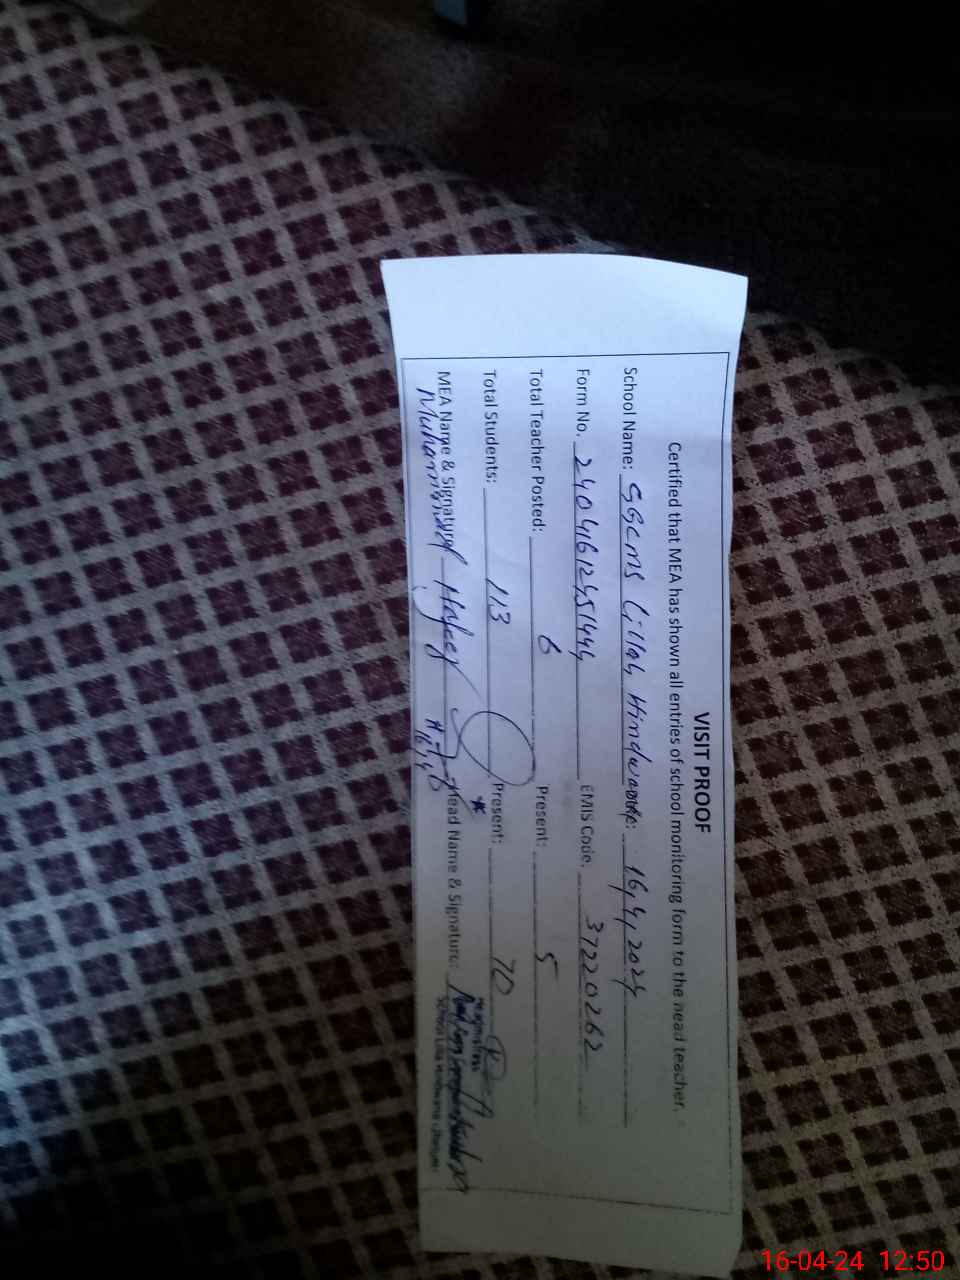 VISIT PROOF
Certified that MEA has shown all entries of school monitoring form to the head teacher.
School Name: GGCMS Lillah Hindwana: 16,4,2024
Form No. EMIS Code. 37220262
Total Teacher Posted: 6 Present: 5
Total Students: 113 Present: 70
MEA Name & Signature Muhammad Hafeez Head Name & Signature:
Headmistress
School Lilla Hindwana
16-04-24 12:50